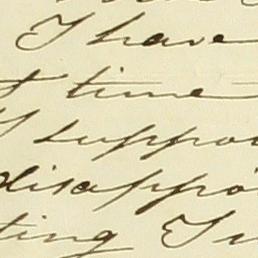 I have
time
suppo
disappo
ting I